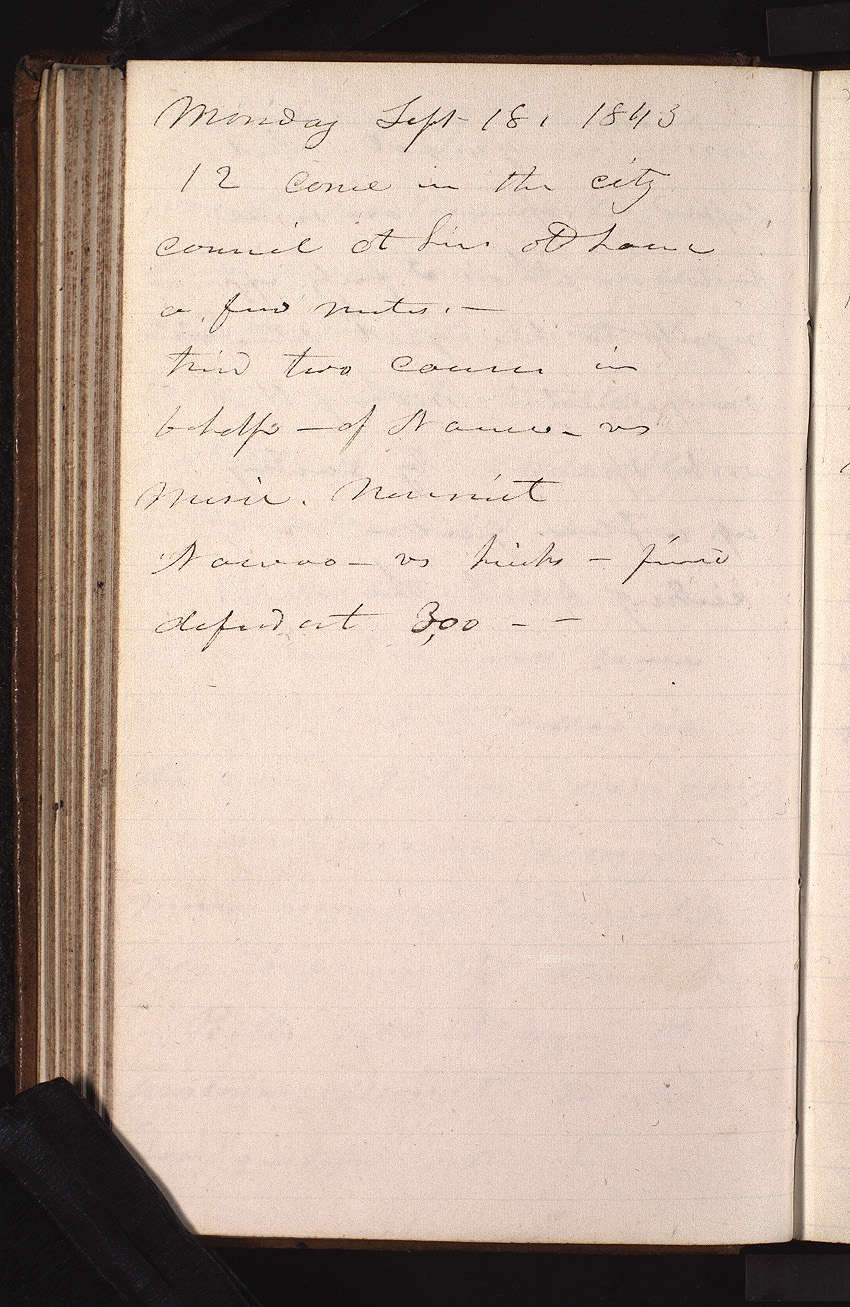 Monday Sept 18, 1843
12 come in the city
council at his old house
a few mutes.—
tried two causes in
behalf — of Nauvoo — vs
Nauvoo — vs hicks — fined
defend ant 3,00 — —